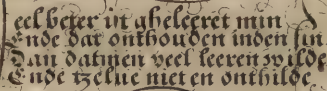 eel beter ist gheleeret min
Ende dat onthouden inden sin
Dan datmen veel leeren wilde
Ende tzelue niet en onthilde